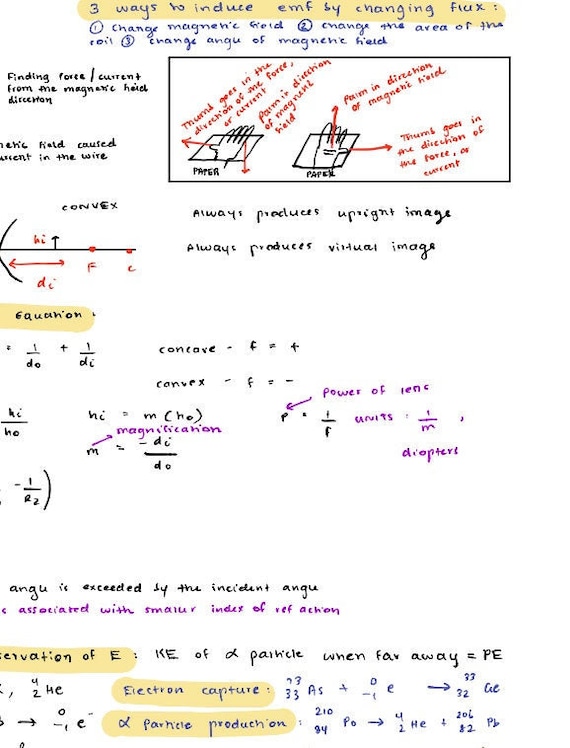 3 ways to induce emf by changing flux :
① change magnetic field ② change the area of the
coil ③ change angle of magnetic field
Finding force / current
from the magnetic field
direction
Thumb goes in the
direction of the force,
or current
Palm in direction
of magnetic
field
PAPER
Palm in direction
of magnetic field
Thumb goes in
the direction of
the force, or
current
PAPER
netic field caused
urrent in the wire
CONVEX
hi
F
c
di
Always produces upright image
Always produces virtual image
Equation :
= 1/do + 1/di
concave - f = +
convex - f = -
hi/ho
hi = m (ho)
magnification
m = -di/do
Power of lens
P = 1/f units : 1/m ,
diopters
-1/R2)
angle is exceeded by the incident angle
associated with smaller index of refraction
servation of E : KE of α particle when far away = PE
, 4 2 He
Electron capture : 73 33 As + 0 -1 e → 33 32 Ge
→ 0 -1 e⁻
α Particle production : 210 84 Po → 4 2 He + 206 82 Pb